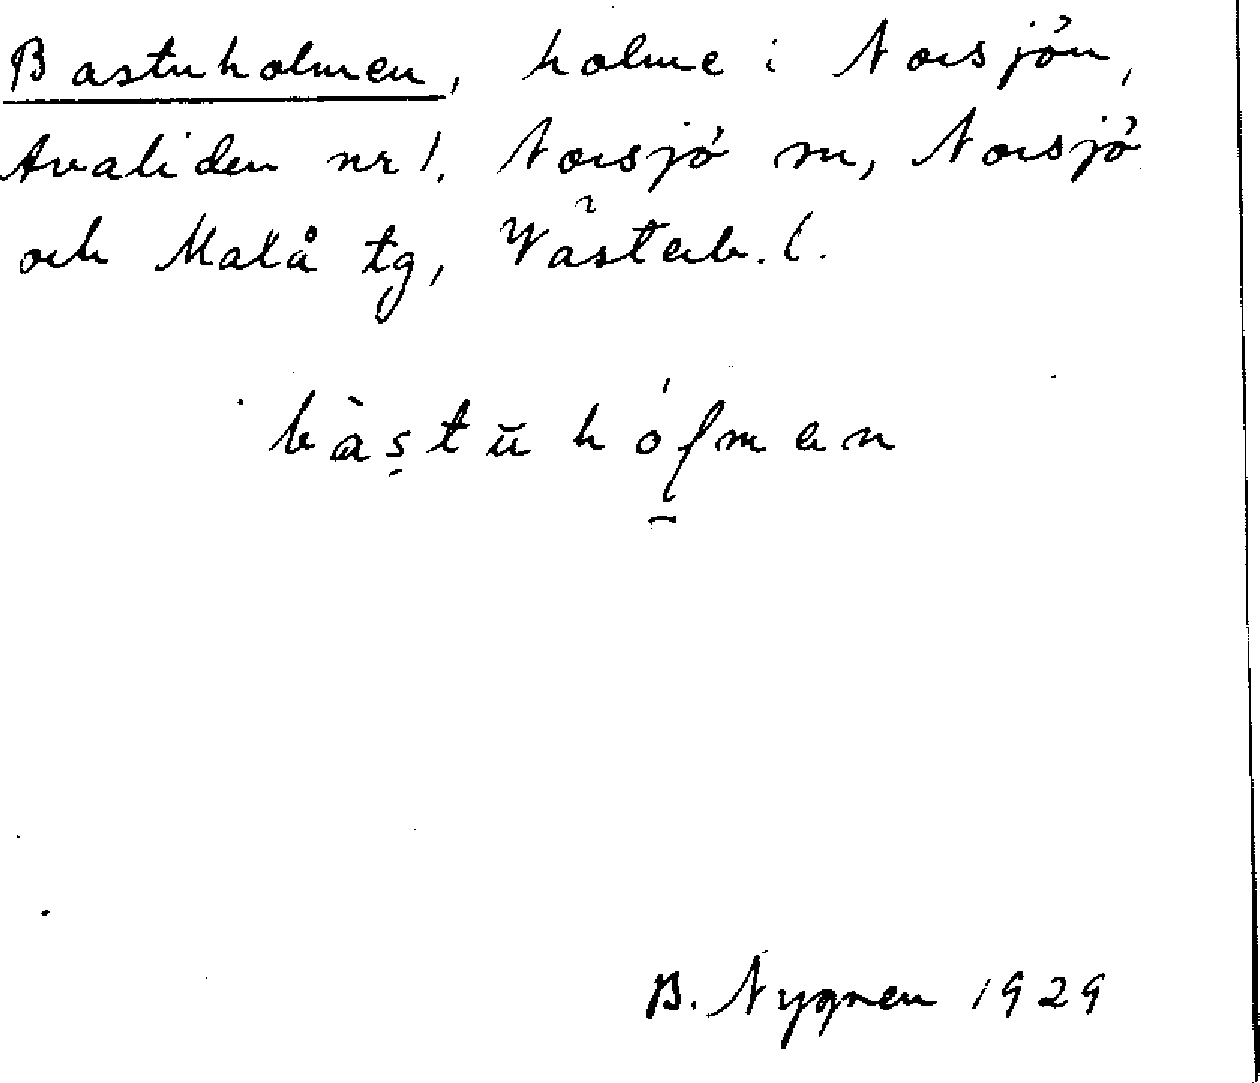 Bastuholmen, holme i Norsjön,
Avaliden nr 1, Norsjö sn, Norsjö
och Malå tg, Västerb. l.
bàṣtūhólmen
B. Nygren 1929